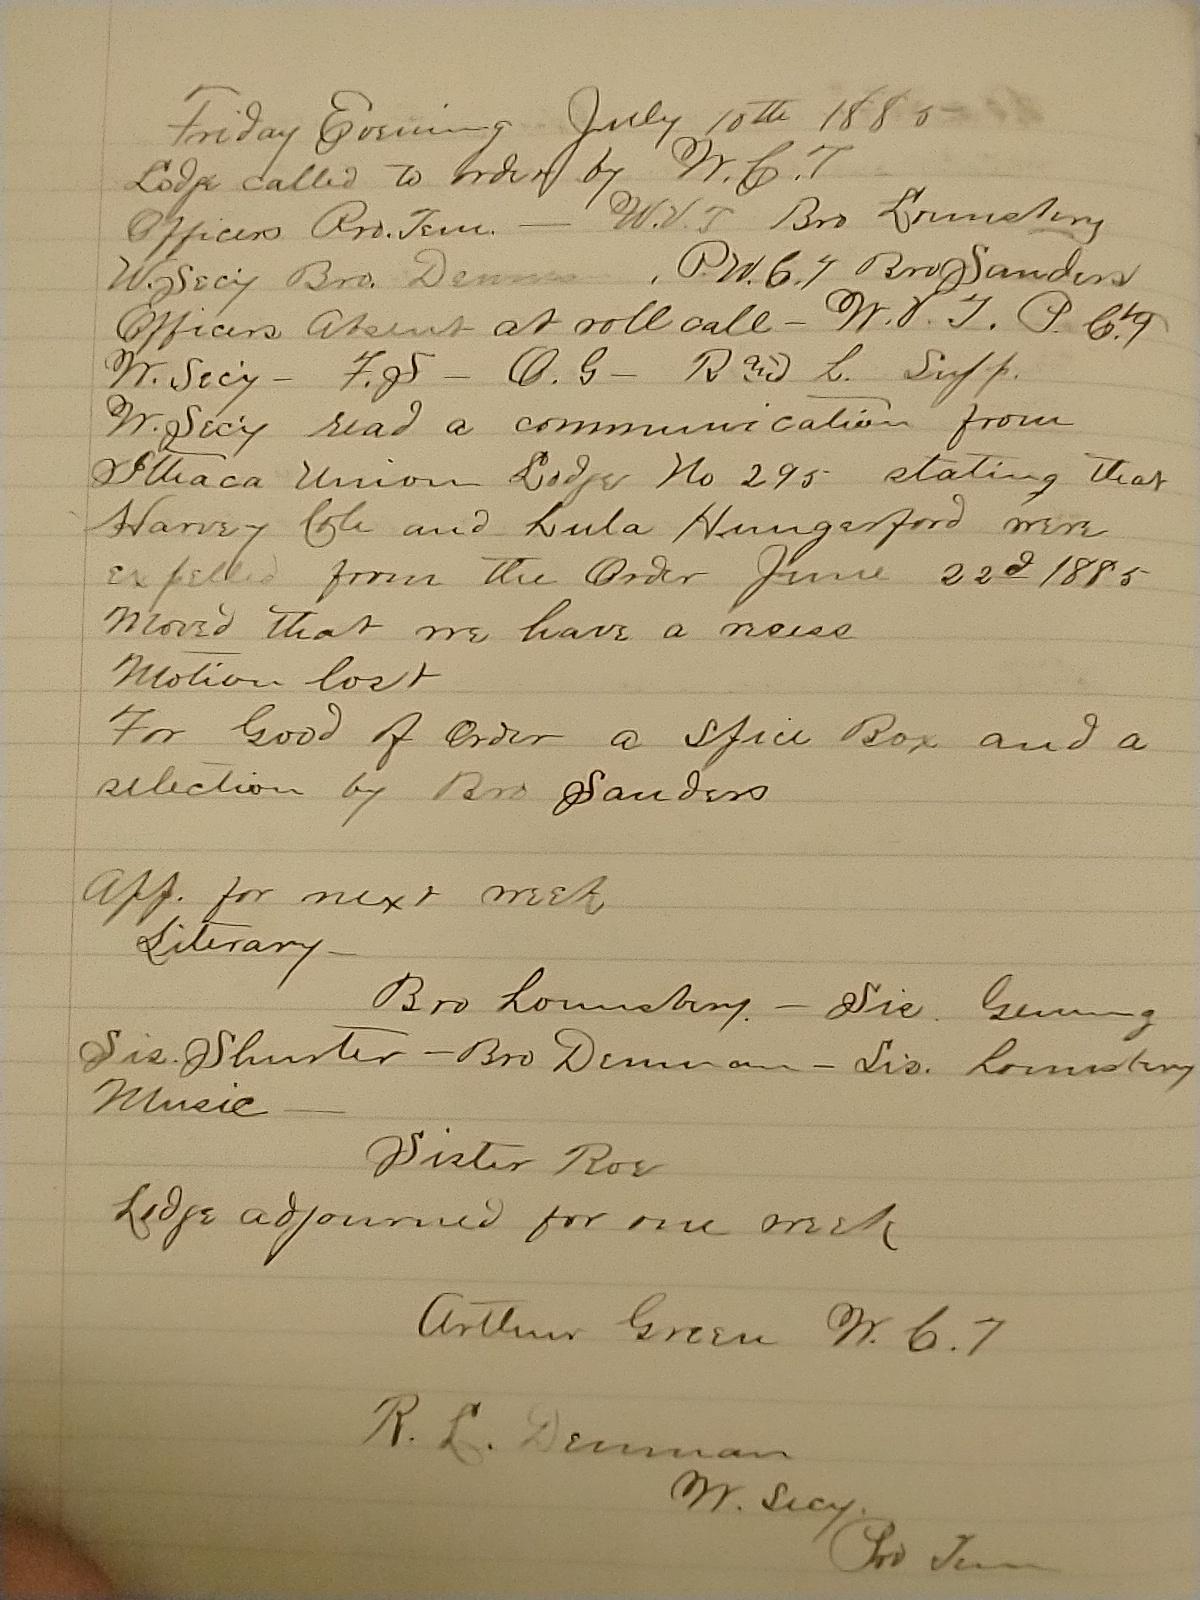 Friday Evening July 10th 1885
Lodge called to order by W.C.T
Officers Pro.Tem. — W.V.T Bro Lounsbery
W.Secy Bro. Denman, P.W.C.T Bro Sanders
Officers Absent at roll call - W.V.T. P.C.T
W.Secy - F.S - O.G - R L. Supp.
W.Secy read a communication from
Ithaca Union Lodge No 295 stating that
Harvey Cole and Lula Hungerford were
expelled from the Order June 22d 1885
Moved that we have a recess
Motion lost
For Good of Order a Spice Box and a
selection by Bro Sanders
App. for next week
Literary -
Bro Lounsbery. - Sis. Genung
Sis. Shurter - Bro Denman - Sis. Lounsbery
Music —
Sister Roe
Lodge adjourned for one week
Arthur Green W.C.T
R. L. Denman
W. Secy.
Pro Tem